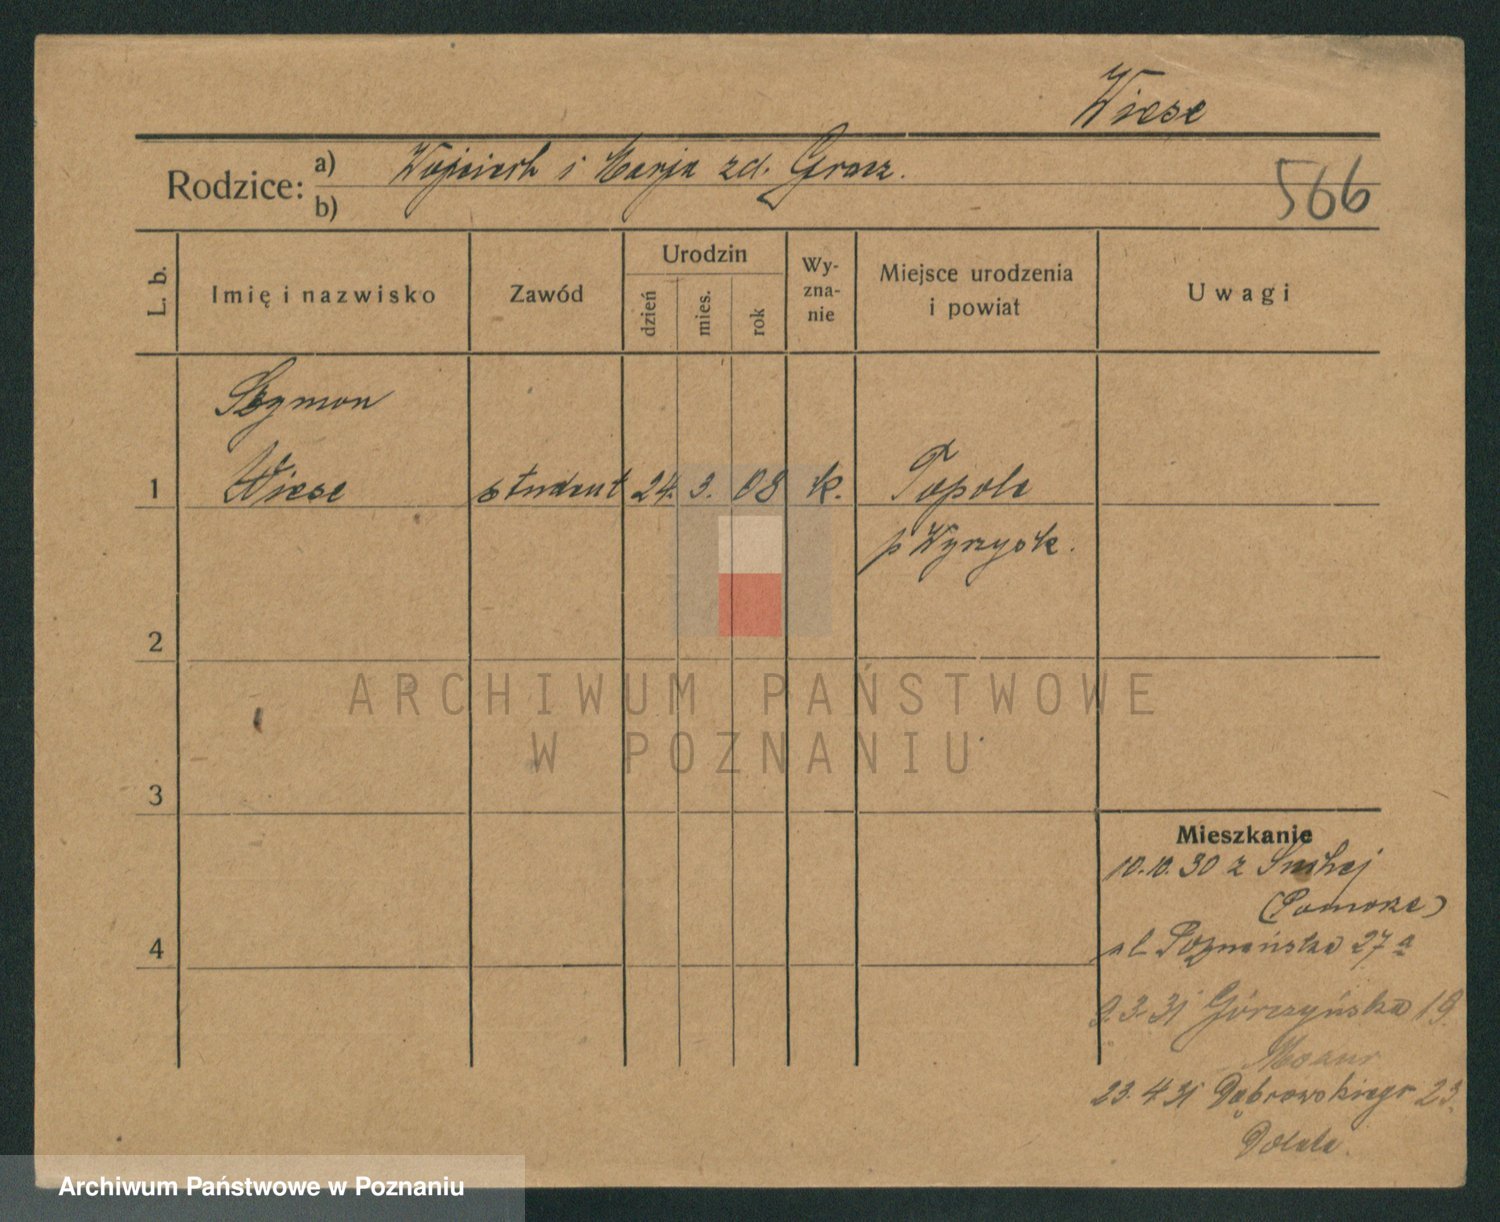 Wiese
Rodzice: a) Wojciech i Marja zd. Gracz.
b)
566
L. b.
Imię i nazwisko
Zawód
Urodzin
dzień
mies.
rok
Wy-
zna-
nie
Miejsce urodzenia
i powiat
Uwagi
Szymon
1 Wiese student 24. 3. 08 k. Topola
p Wyrzysk.
2
ARCHIWUM PAŃSTWOWE
W POZNANIU
3
Mieszkanie
10.10.30 z
(Pomorze)
ul. Poznańska 27 a
4
9.3.31 Górczyńska 19.
23.4.31 Dąbrowskiego 23.
Archiwum Państwowe w Poznaniu